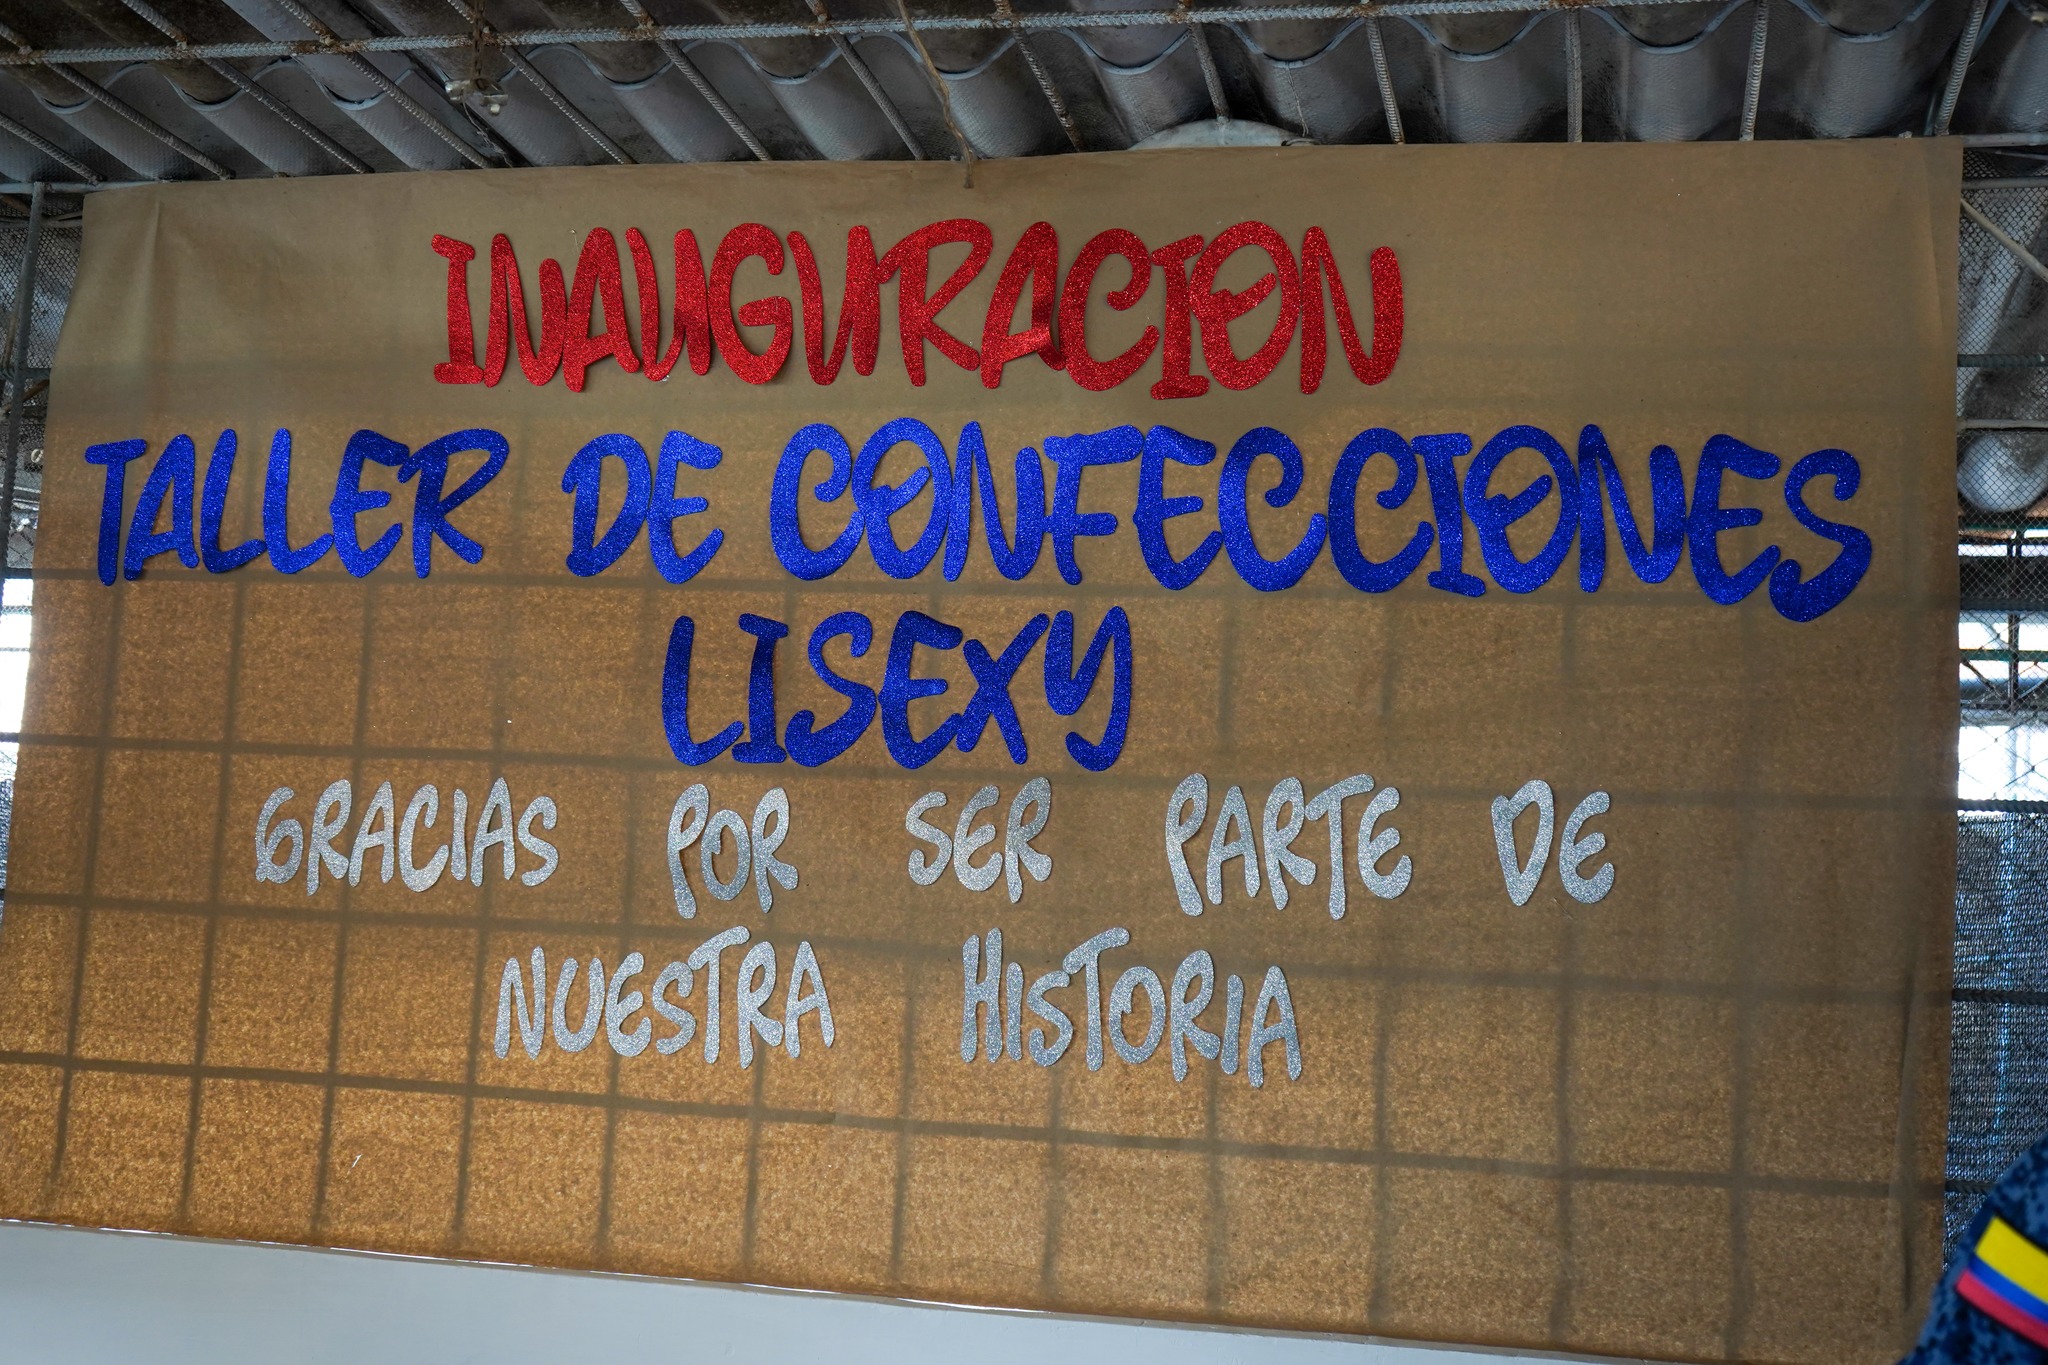 INAUGURACION
TALLER DE CONFECCIONES
LISEXY
GRACIAS POR SER PARTE DE
NUESTRA HISTORIA